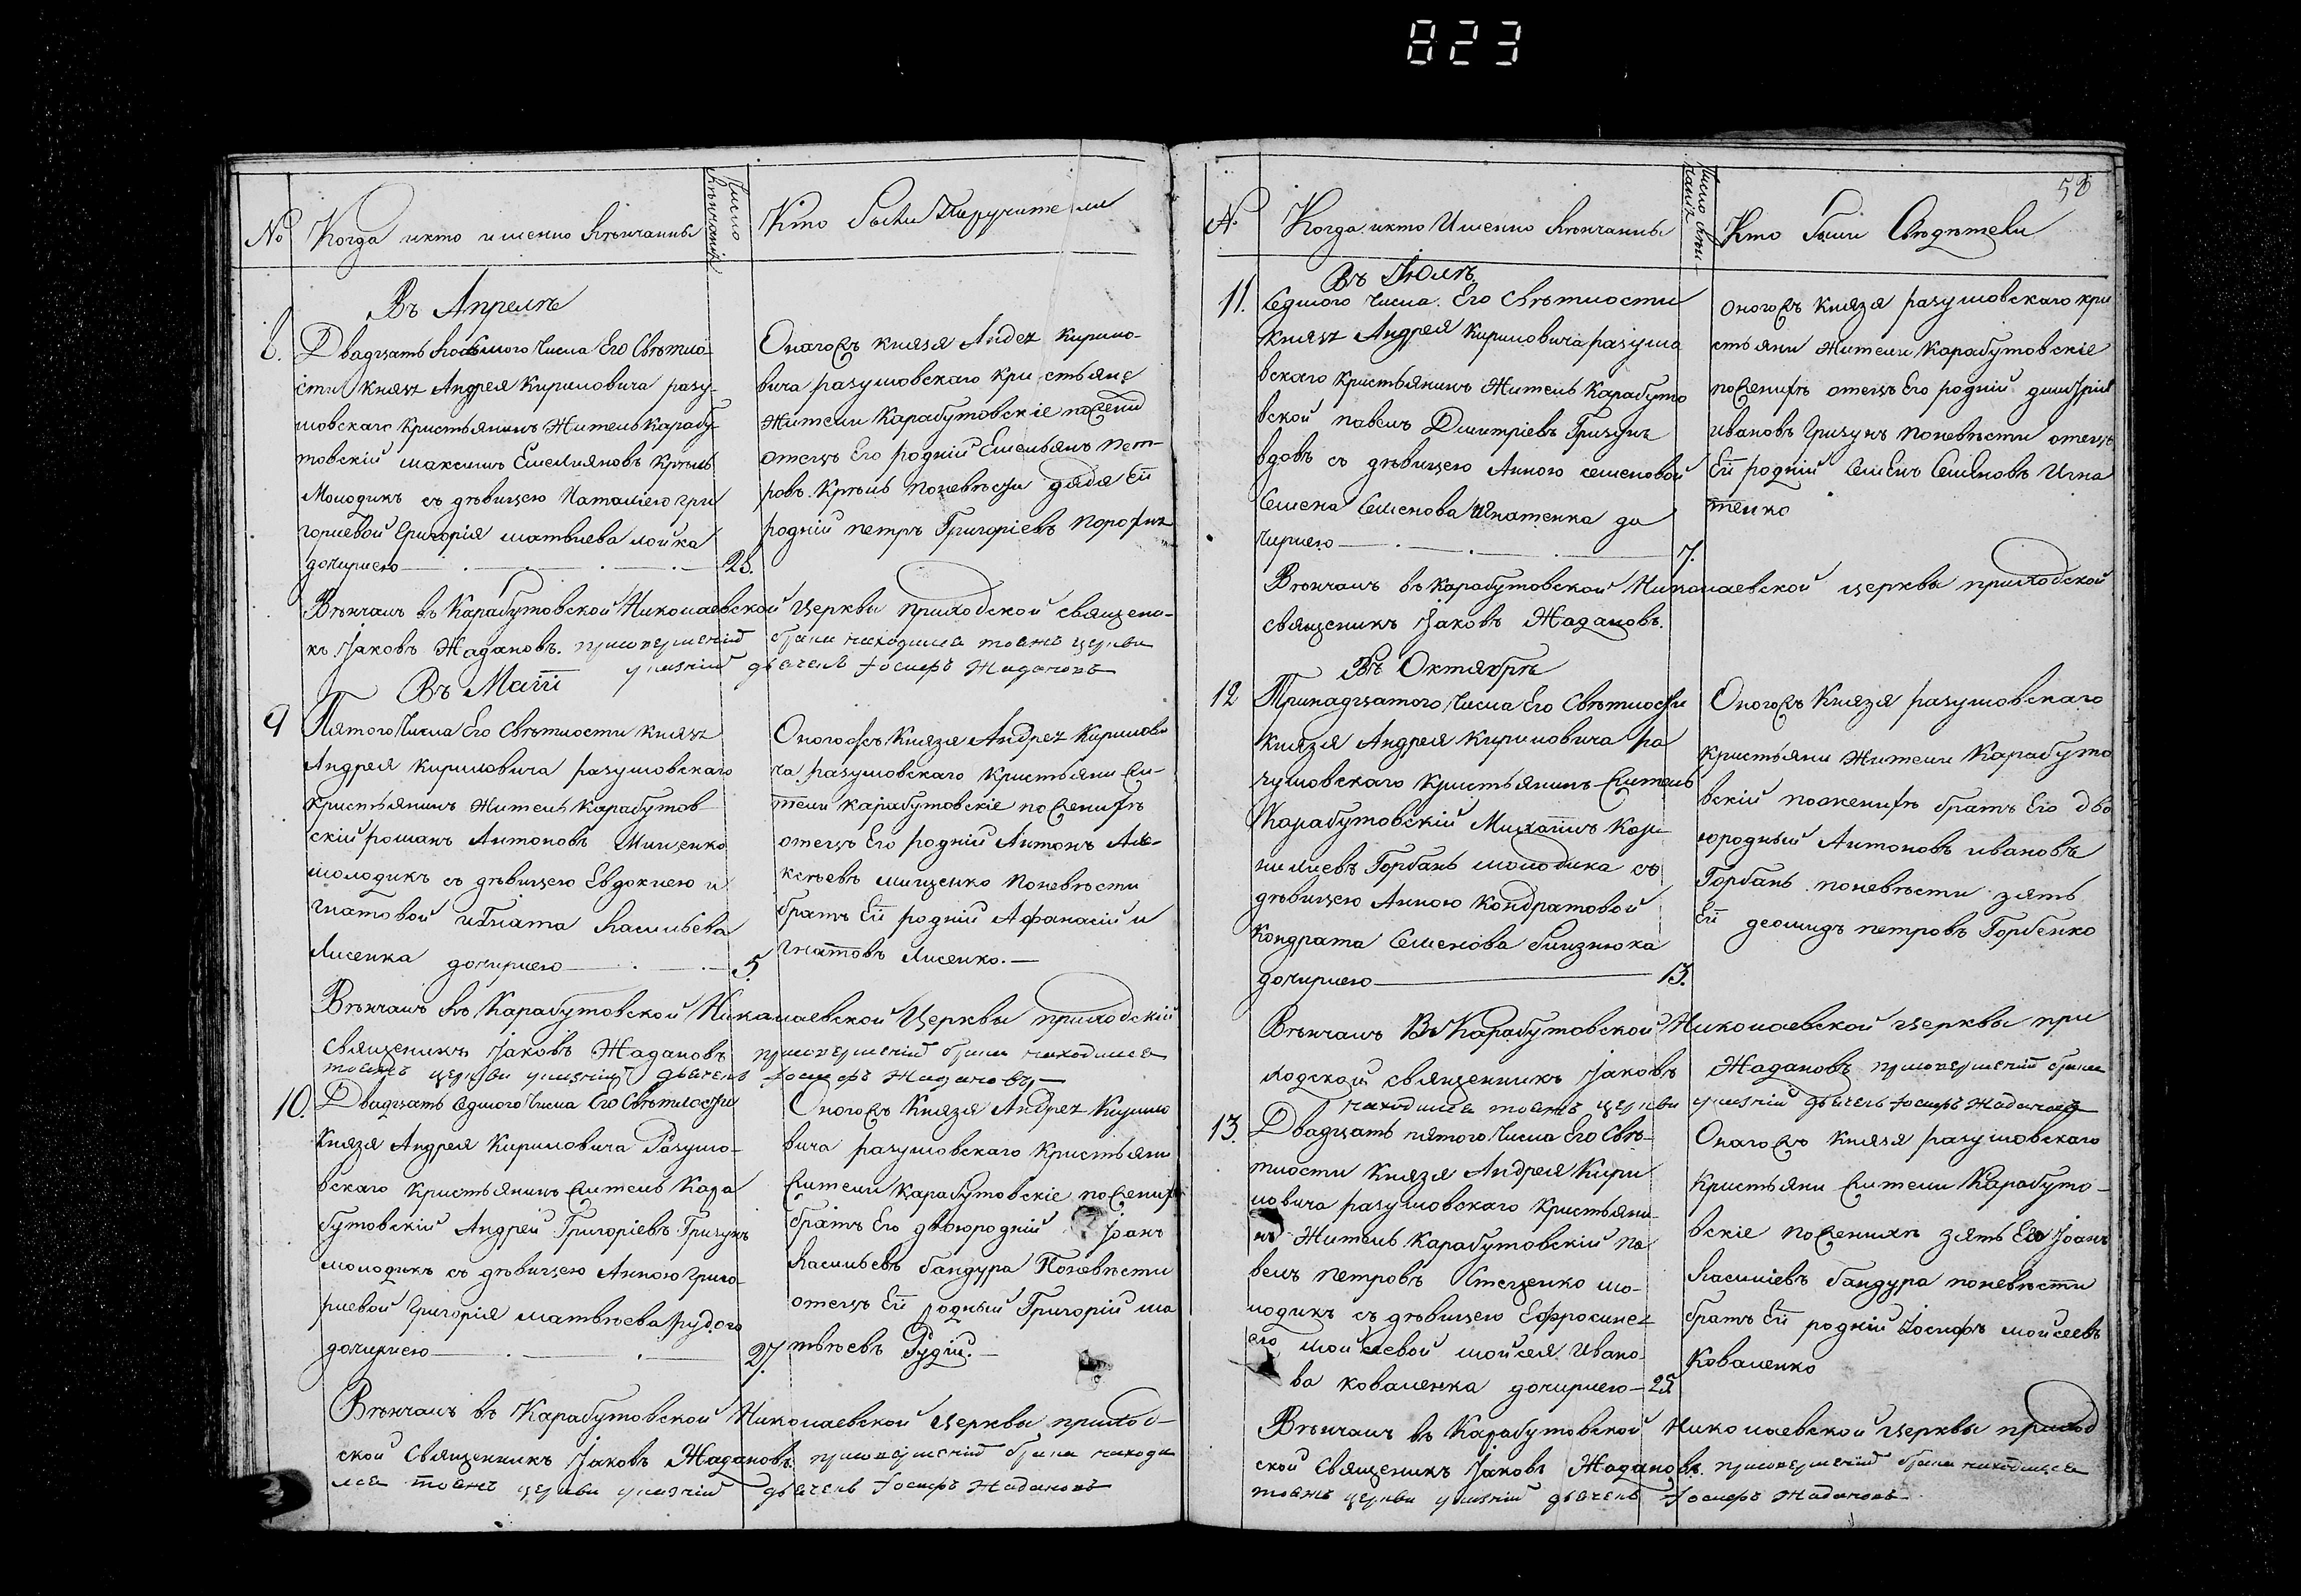 823
№
Когда икто именно Вѣнчанны
Число Вѣнчанія
Кто были Паручители
Въ Апрелѣ
8.
Двадцать восьмого Числа Его Свѣтло-
сти Князя Андрея Кириловича разу-
мовскаго Кристьянинъ Житель Карабу-
товскій максимъ Емелияновъ
Молодикъ съ дѣвицею Наталіею гри
гориевой Григорія матвиева лойка
дочирмею 28.
Оного съ князя Андрея Кирило-
вича разумовскаго кристьяне
Жители Карабутовскіе
отецъ Его родній Емельянъ пет-
ровъ поневѣсти дядя Ей
родній петръ Григоріевъ
Вѣнчалъ въ Карабутовской Николаевской Церквы приходской священо-
къ Іаковъ Жадановъ. присовершеній брака находился тояжъ церкви
умѣстній дьячекъ Іосифъ Жадановъ
Въ Маіи
9
Пятого Числа Его Свѣтлости князя
Андрея Кириловича разумовскаго
кристьянинъ Житель Карабутов
скій романъ Антоновъ Мищенко
молодикъ съ дѣвицею Евдокиею и
гнатовой игната Васильева
Лисенка дочирмею 5.
Оного съ Князя Андрея Кирилови
ча разумовскаго кристьяни жи-
тели карабутовскіе по женихѣ
отецъ Его родній Антонъ Але-
ксѣевъ мищенко поневѣсти
братъ Ей родній Афанасій и
гнатовъ Лисенко.
Вѣнчалъ въ Карабутовской Николаевской Церквы приходскій
священикъ Іаковъ Жадановъ присовершеній брака находился
тояжъ церкви дьячекъ Іосифъ Жадановъ
10.
Двадцать Седмого Числа Его Свѣтлости
Князя Андрея Кириловича Разумо-
вскаго Кристьянинъ житель Кара
бутовскій Андрей Григоріевъ Гризунъ
молодикъ съ дѣвицею Анною григо-
риевой Григорія матвѣева рудого
дочирмею 27.
Оного съ Князя Андрея Кирило
вича разумовскаго Кристьяни
жители Карабутовскіе по женихѣ
братъ Его двоюродній Іоанъ
Васильевъ бандура Поневѣсти
отецъ Ей родный Григорій ма
твѣевъ Рудій.
Вѣнчалъ въ Карабутовской Николаевской Церквы приход-
ской Священникъ Іаковъ Жадановъ. присовершеній брака находи
лся тояжъ церкви дьячекъ Іосифъ Жадановъ
58
№
Когда икто Именно Вѣнчанны
Число Вѣнчанія
Кто были Свѣдѣтели
Въ Іюлѣ
11.
Седмого Числа Его Свѣтлости
Князя Андрея Кириловича разумо
вскаго Кристьянинъ Житель Карабуто
вской павелъ Дмитріевъ Гризунъ
вдовъ съ дѣвицею Анною семеновой
Семена Семенова Игнатенка до
чирмею 7.
оного съ Князя разумовскаго кри
стьяни Жители Карабутовскіе
по женихѣ отецъ Его родній димитрій
ивановъ Гризунъ поневѣсти отецъ
Ей родній Семенъ Семеновъ Игна
тенко
Вѣнчалъ въ Карабутовской Николаевской церквы приходской
священикъ Іаковъ Жадановъ.
Въ Октябрѣ
12
Тринадцатого Числа Его Свѣтлости
Князя Андрея Кириловича ра
зумовскаго Кристьянинъ житель
Карабутовскій Михаилъ Кор-
нилиевъ Горбань молодика съ
дѣвицею Анною Кондратовой
Кондрата Семенова близнюка
дочирмею 13.
Оного съ Князя разумовскаго
кристьяни Жители Карабуто
вскій поженихѣ братъ Его дво
юродный Антоновъ ивановъ
Горбань поневѣсти зять
Ей деомидъ петровъ Горбенко
Вѣнчалъ Въ Карабутовской Николаевской церквы при
ходской священникъ Іаковъ Жадановъ присовершеній брака
находился тояжъ церкви дьячекъ Іосифъ Жадановъ
13.
Двадцать пятого Числа Его Свѣ-
тлости Князя Андрея Кири
ловича разумовскаго Кристьяни-
нъ Житель Карабутовскій па
велъ петровъ Стеценко мо-
лодикъ съ дѣвицею Ефросине-
ею мойсеевой мойсея Ивано-
ва коваленка дочирмею 25
Оного съ Князя разумовскаго
Кристьяни жители Карабуто-
вскіе поженихѣ зять Его Іоанъ
Василіевъ бандура поневѣсти
братъ Ей родній Іосифъ мойсеевъ
Коваленко
Вѣнчалъ въ Карабутовской Николаевской церквы приход
ской Священикъ Іаковъ Жадановъ. присовершеній брака находился
тояжъ церкви дьячекъ Іосифъ Жадановъ